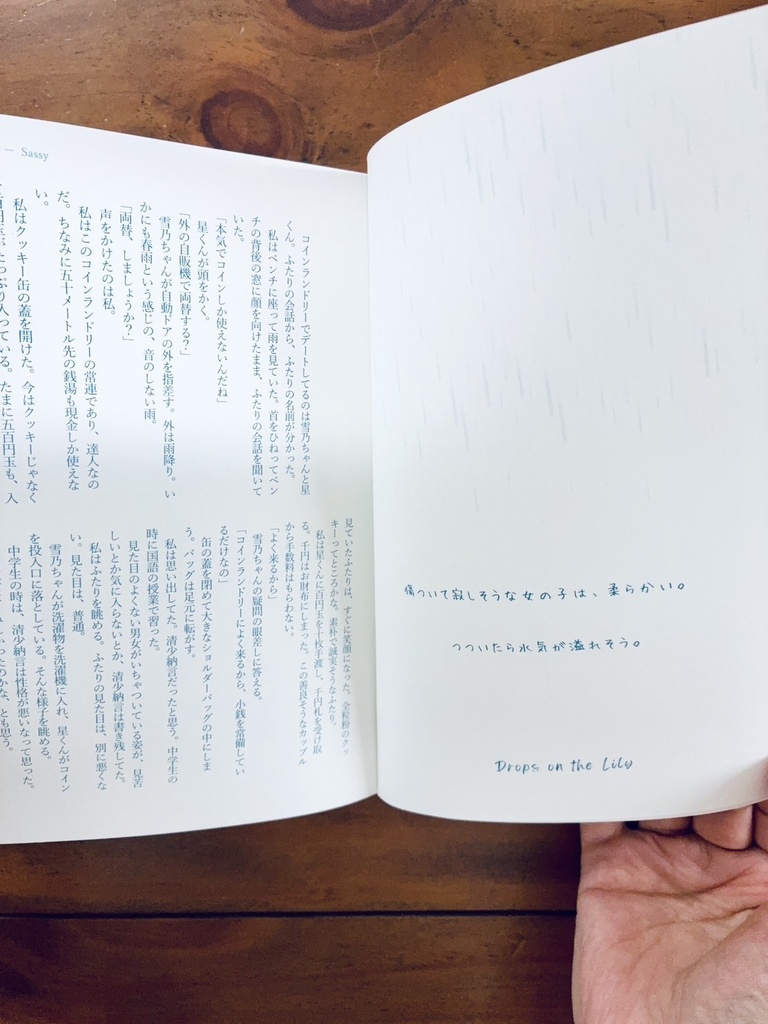 傷ついて寂しそうな女の子は、柔らかい。
つついたら水気が溢れそう。
Drops on the Lily
— Sassy
コインランドリーでデートしてるのは雪乃ちゃんと星
くん。ふたりの会話から、ふたりの名前が分かった。
私はベンチに座って雨を見ていた。首をひねってベン
チの背後の窓に顔を向けたまま、ふたりの会話を聞いて
いた。
「本気でコインしか使えないんだね」
星くんが頭をかく。
「外の自販機で両替する?」
雪乃ちゃんが自動ドアの外を指差す。外は雨降り。い
かにも春雨という感じの、音のしない雨。
「両替、しましょうか?」
声をかけたのは私。
私はこのコインランドリーの常連であり、達人なの
だ。ちなみに五十メートル先の銭湯も現金しか使えな
い。
私はクッキー缶の蓋を開けた。今はクッキーじゃなく
たっぷり入っている。たまに五百円玉も、入
見ていたふたりは、すぐに笑顔になった。全粒粉のクッ
キーってところかな。素朴で誠実そうなふたり。
私は星くんに百円玉を十枚手渡し、千円札を受け取
る。千円はお財布にしまった。この善良そうなカップル
から手数料はもらわない。
「よく来るから」
雪乃ちゃんの疑問の眼差しに答える。
「コインランドリーによく来るから、小銭を常備してい
るだけなの」
缶の蓋を閉めて大きなショルダーバッグの中にしま
う。バッグは足元に転がす。
私は思い出してた。清少納言だったと思う。中学生の
時に国語の授業で習った。
見た目のよくない男女がいちゃついている姿が、見苦
しいとか気に入らないとか、清少納言は書き残してた。
私はふたりを眺める。ふたりの見た目は、別に悪くな
い。見た目は、普通。
雪乃ちゃんが洗濯物を洗濯機に入れ、星くんがコイン
を投入口に落としている。そんな様子を眺める。
中学生の時は、清少納言は性格が悪いなって思った。
のかな、とも思う。